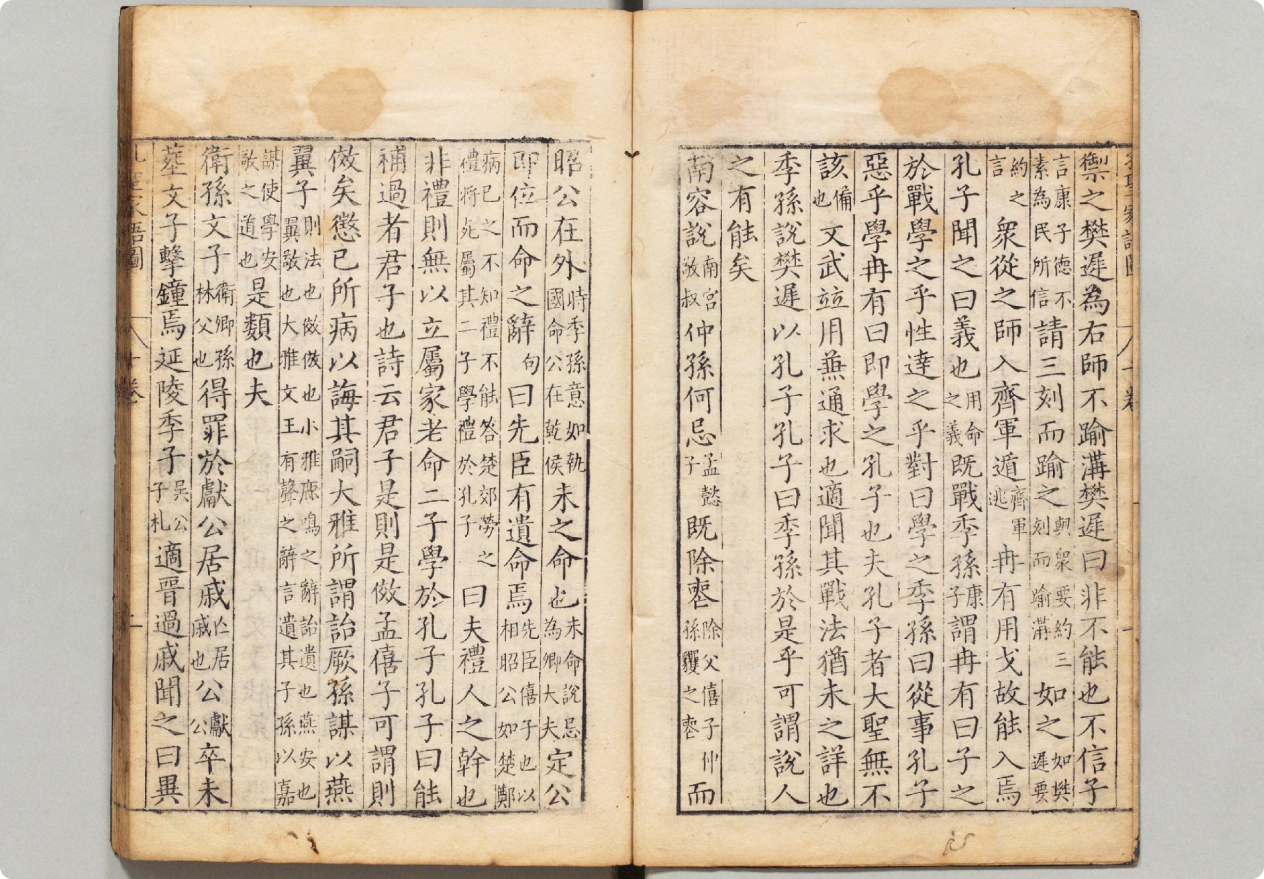 聖家語圖 八十卷 一
禦之樊遲為右師不踰溝樊遲曰非不能也不信子
言康子德不素為民所信請三刻而踰之與眾要約三刻而踰溝如之如樊遲要
約之言眾從之師入齊軍遁齊軍逃冉有用戈故能入焉
孔子聞之曰義也用命之義既戰季孫康子謂冉有曰子之
於戰學之乎性達之乎對曰學之季孫曰從事孔子
惡乎學冉有曰即學之孔子也夫孔子者大聖無不
該備也文武並用兼通求也適聞其戰法猶未之詳也
季孫說樊遲以孔子孔子曰季孫於是乎可謂說人
之有能矣
南容說南宮敬叔仲孫何忌孟懿子既除喪除父僖子仲孫貜之喪而
昭公在外時季孫意如執國命公在乾侯未之命也未命說忌為卿大夫定公
即位而命之辭句曰先臣有遺命焉先臣僖子也以相昭公如楚鄭
病已之不知禮不能答楚郊勞之禮將死屬其二子學禮於孔子曰夫禮人之幹也
非禮則無以立屬家老命二子學於孔子孔子曰能
補過者君子也詩云君子是則是傚孟僖子可謂則
傚矣懲已所病以誨其嗣大雅所謂詒厥孫謀以燕
翼子則法也傚傚也小雅鹿鳴之辭詒遺也燕安也翼敬也大雅文王有聲之辭言遺其子孫以嘉
謀使學安敬之道也是類也夫
衛孫文子衛卿孫林父也得罪於獻公居戚以居戚也公獻公卒未
葬文子擊鐘焉延陵季子吳公子札適晉過戚聞之曰異
孔聖家語圖 八十卷 二